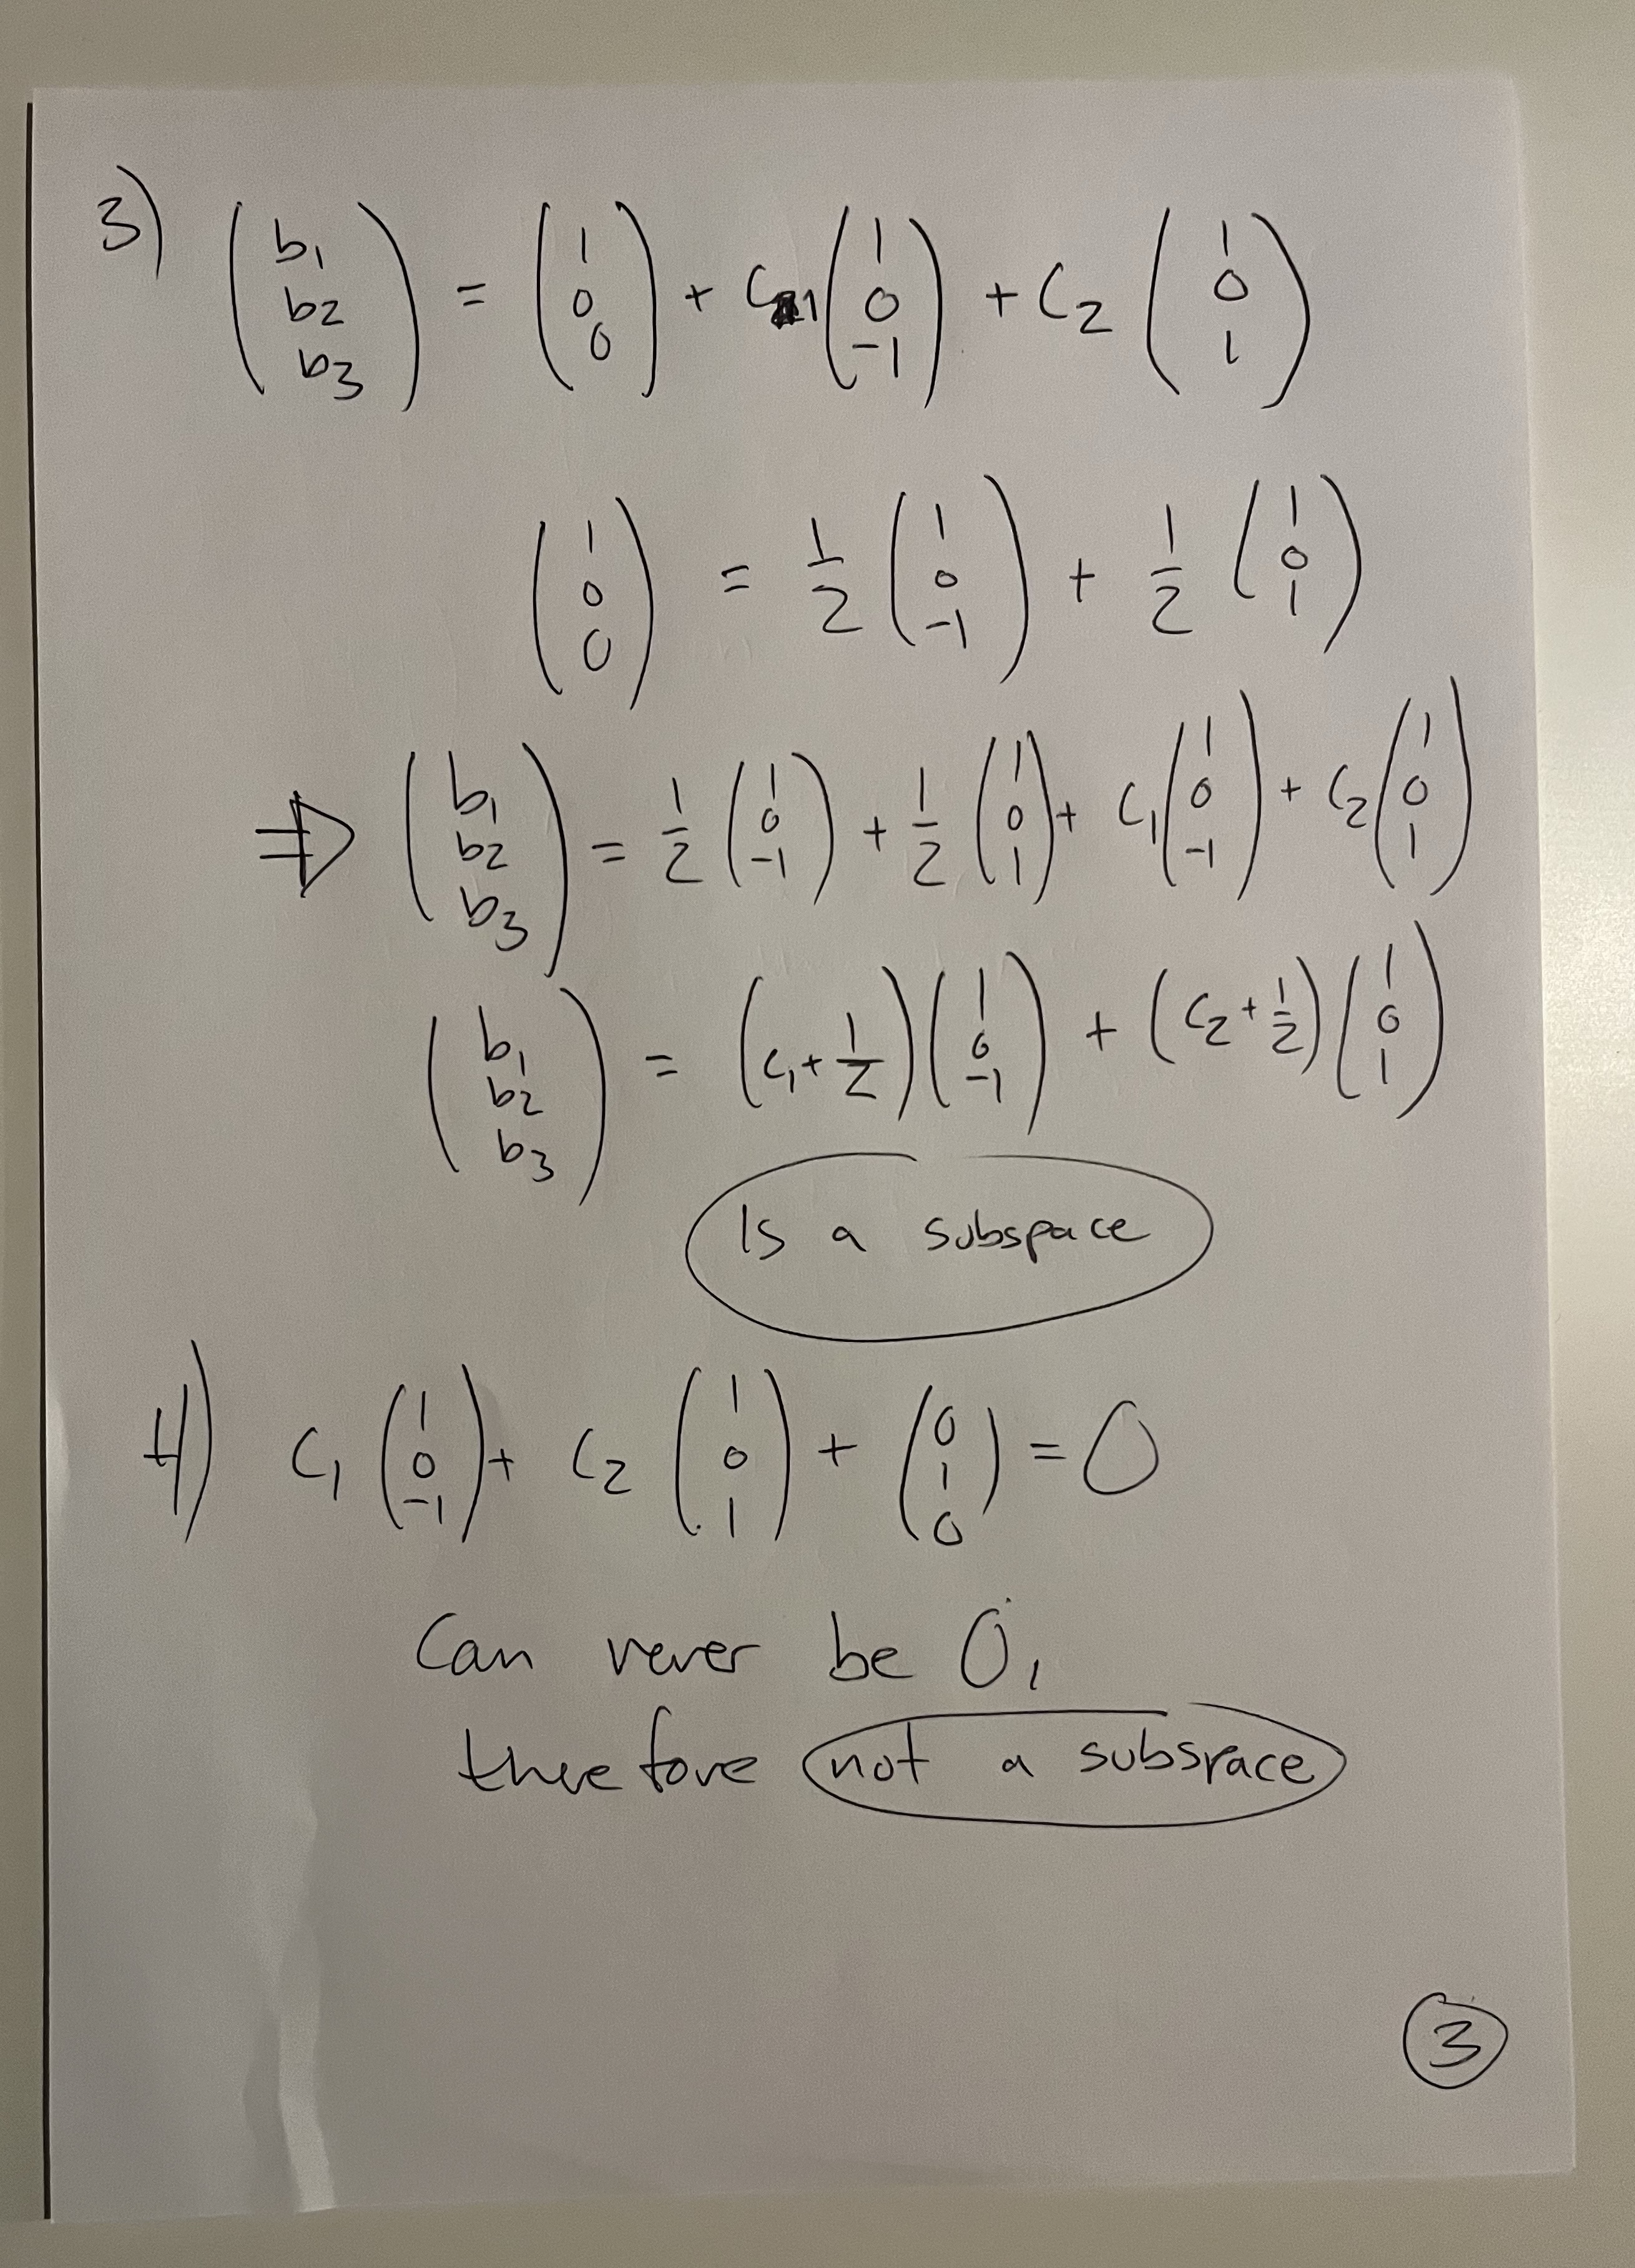 3) (b1 b2 b3) = (1 0 0) + C1 (1 0 -1) + C2 (1 0 1)
(1 0 0) = 1/2 (1 0 -1) + 1/2 (1 0 1)
⇒ (b1 b2 b3) = 1/2 (1 0 -1) + 1/2 (1 0 1) + C1 (1 0 -1) + C2 (1 0 1)
(b1 b2 b3) = (C1 + 1/2) (1 0 -1) + (C2 + 1/2) (1 0 1)
Is a subspace
4) C1 (1 0 -1) + C2 (1 0 1) + (0 1 0) = 0
Can never be 0,
therefore not a subspace
3